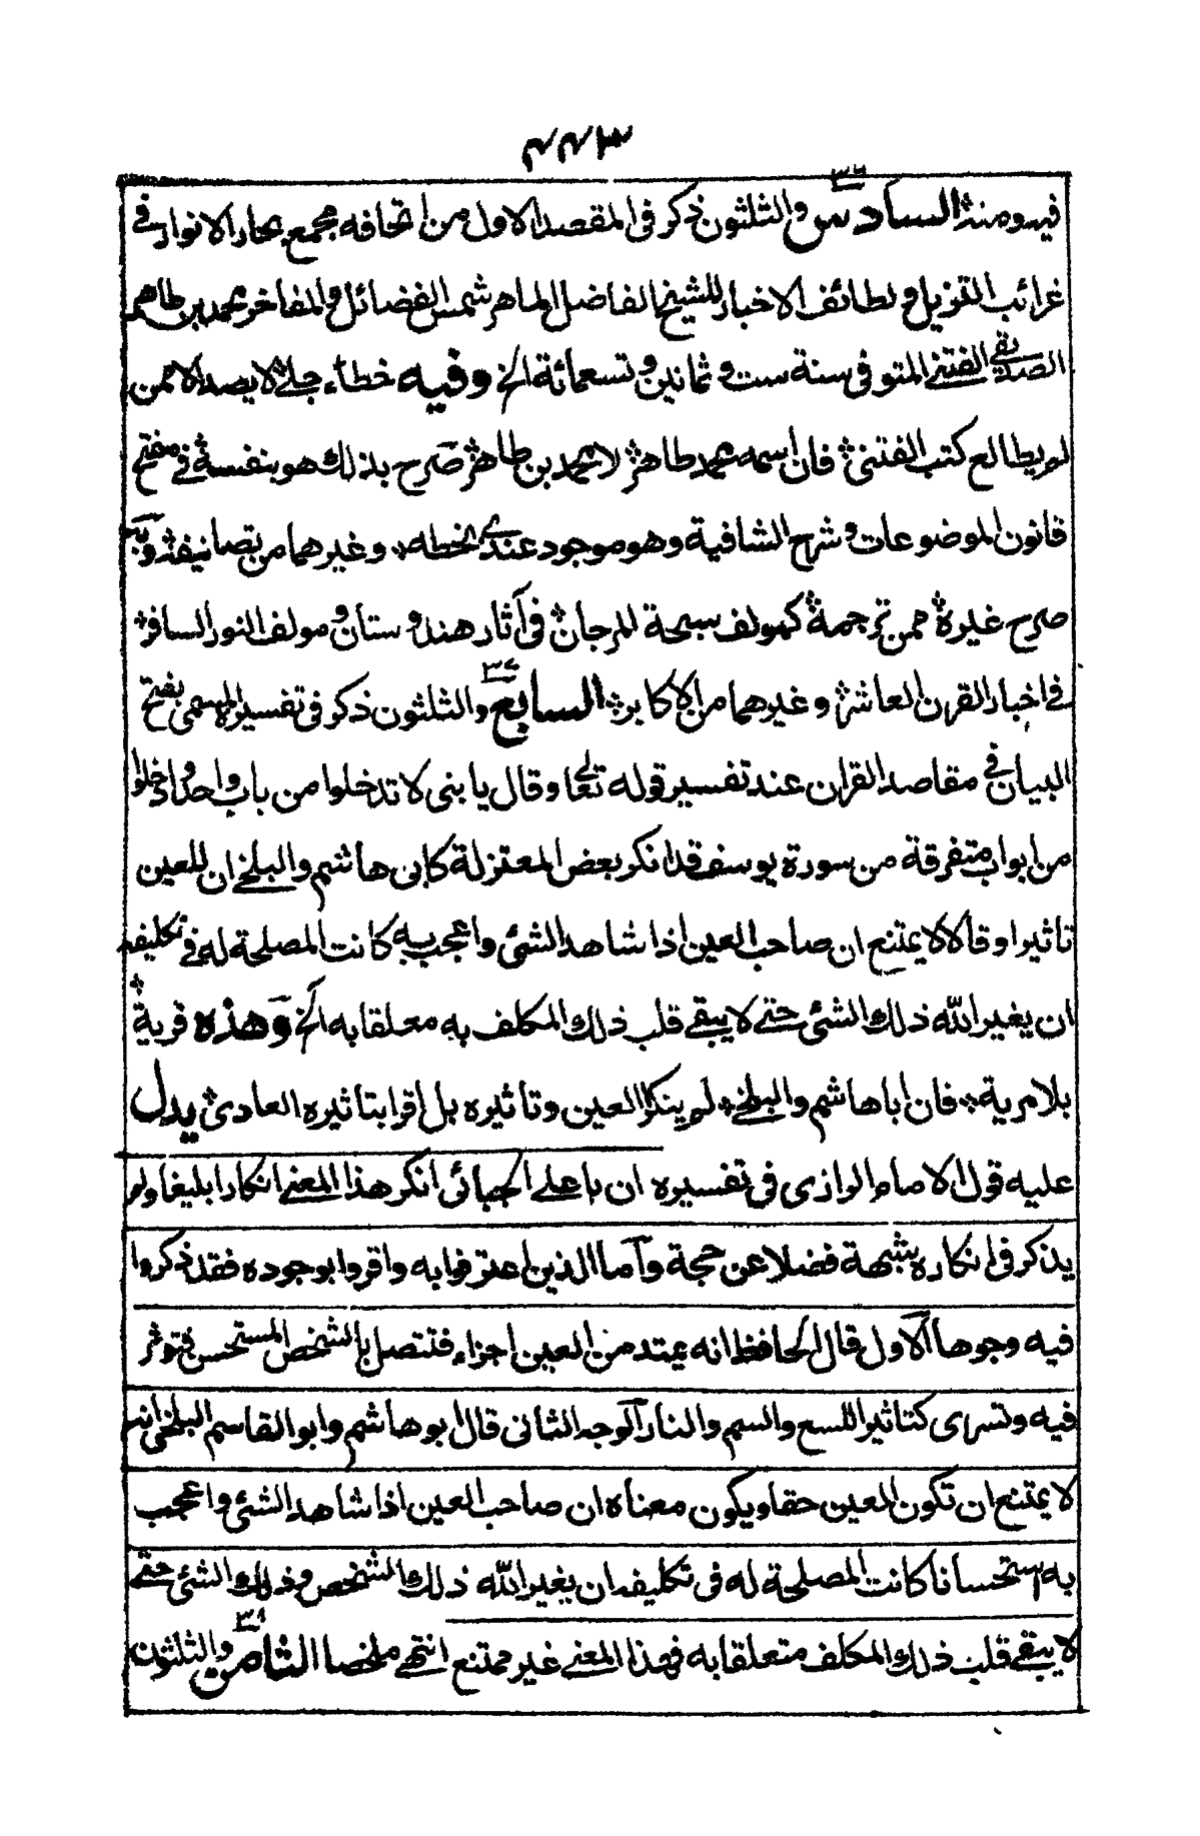 فيه ومنه السادس والثلثون ذكر فى المقصد الاول من اتحافه مجمع بحار الانوار فى
غرائب التنزيل ولطائف الاخبار للشيخ الفاضل الماهر شمس الفضائل والمفاخر محمد بن طاهر
الصديقى الفتنى المتوفى سنة ست وثمانين وتسعمائة الخ وفيه خطاء جلى لا يصدر الا ممن
لم يطالع كتب الفتنى فان اسمه محمد طاهر لا محمد بن طاهر صرح بذلك هو بنفسه فى مفتتح
قانون الموضوعات وشرح الشافية وهو موجود عندى بخطه وغيرهما من تصانيفه وبه
صرح غيره ممن ترجمه كمولف سبحة المرجان فى آثار هندوستان ومولف النور السافر
فى اخبار القرن العاشر وغيرهما من الاكابر السابع ٣٧ والثلثون ذكر فى تفسيره المسمى بفتح
البيان فى مقاصد القران عند تفسير قوله تعالى وقال يا بنى لا تدخلوا من باب واحد وادخلوا
من ابواب متفرقة من سورة يوسف قد انكر بعض المعتزلة كابى هاشم والبلخى ان للعين
تاثيرا وقالا لا يمتنع ان صاحب العين اذا شاهد الشئ واعجب به كانت المصلحة له فى تكليفه
ان يغير الله ذلك الشئ حتى لا يبقى قلب ذلك المكلف به معلقا به الخ وهذه فرية
بلا مرية فان ابا هاشم والبلخى لم ينكرا العين وتاثيره بل اقرا بتاثيره العادى يدل
عليه قول الامام الرازى فى تفسيره ان با على الجبائى انكر هذا المعنى انكارا بليغا ولم
يذكر فى انكاره شبهة فضلا عن حجة وآما الذين اعترفوا به واقروا بوجوده فقد ذكروا
فيه وجوها آلاول قال الحافظ انه يمتد من العين اجزاء فتتصل بالشخص المستحسن فتوثر
فيه وتسرى كتاثير اللسع والسم والنار آلوجه الثانى قال ابو هاشم وابو القاسم البلخى انه
لا يمتنع ان تكون العين حقا ويكون معناه ان صاحب العين اذا شاهد الشئ واعجب
به استحسانا كانت المصلحة له فى تكليفه ان يغير الله ذلك الشخص وذلك الشئ حتى
لا يبقى قلب ذلك المكلف متعلقا به فهذا المعنى غير ممتنع انتهى ملخصا الثامن ٣٨ والثلثون